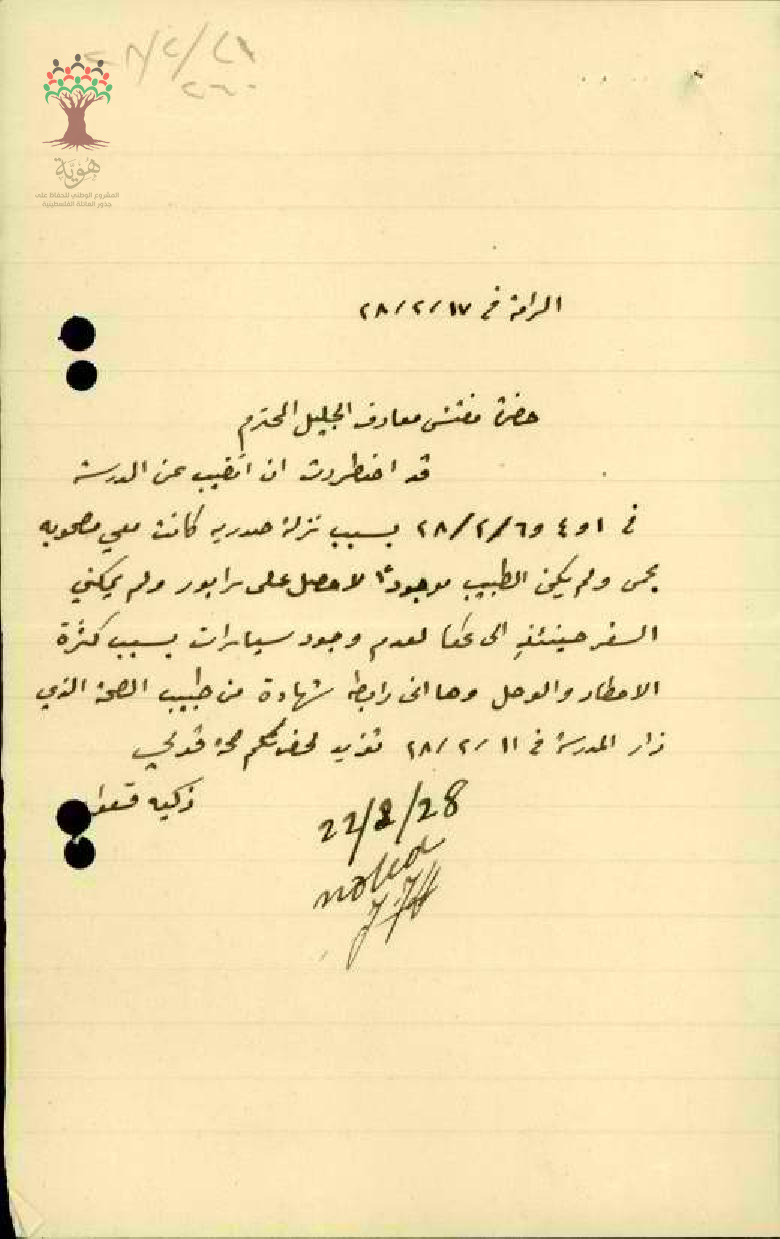 ٢٨/٢/٢١
٢٦٠
هُويَّة
المشروع الوطني للحفاظ على
جذور العائلة الفلسطينية
الرامة في ٢٨/٢/١٧
حضرة مفتش معارف الجليل المحترم
قد اضطررت ان اتغيب عن المدرسة
في ١ و ٤ و ٢٨/٢/٦ بسبب نزلة صدريه كانت معي مصحوبه
بحمى ولم يكن الطبيب موجودًا لاحصل على رابور ولم يمكني
السفر حينئذٍ الى عكا لعدم وجود سيارات بسبب كثرة
الامطار والوحل وها انى رابطه شهادة من طبيب الصحة الذي
زار المدرسة في ٢٨/٢/١١ تؤيد لحضرتكم صحة قولي
زكيه قعوار
22/2/28
noted